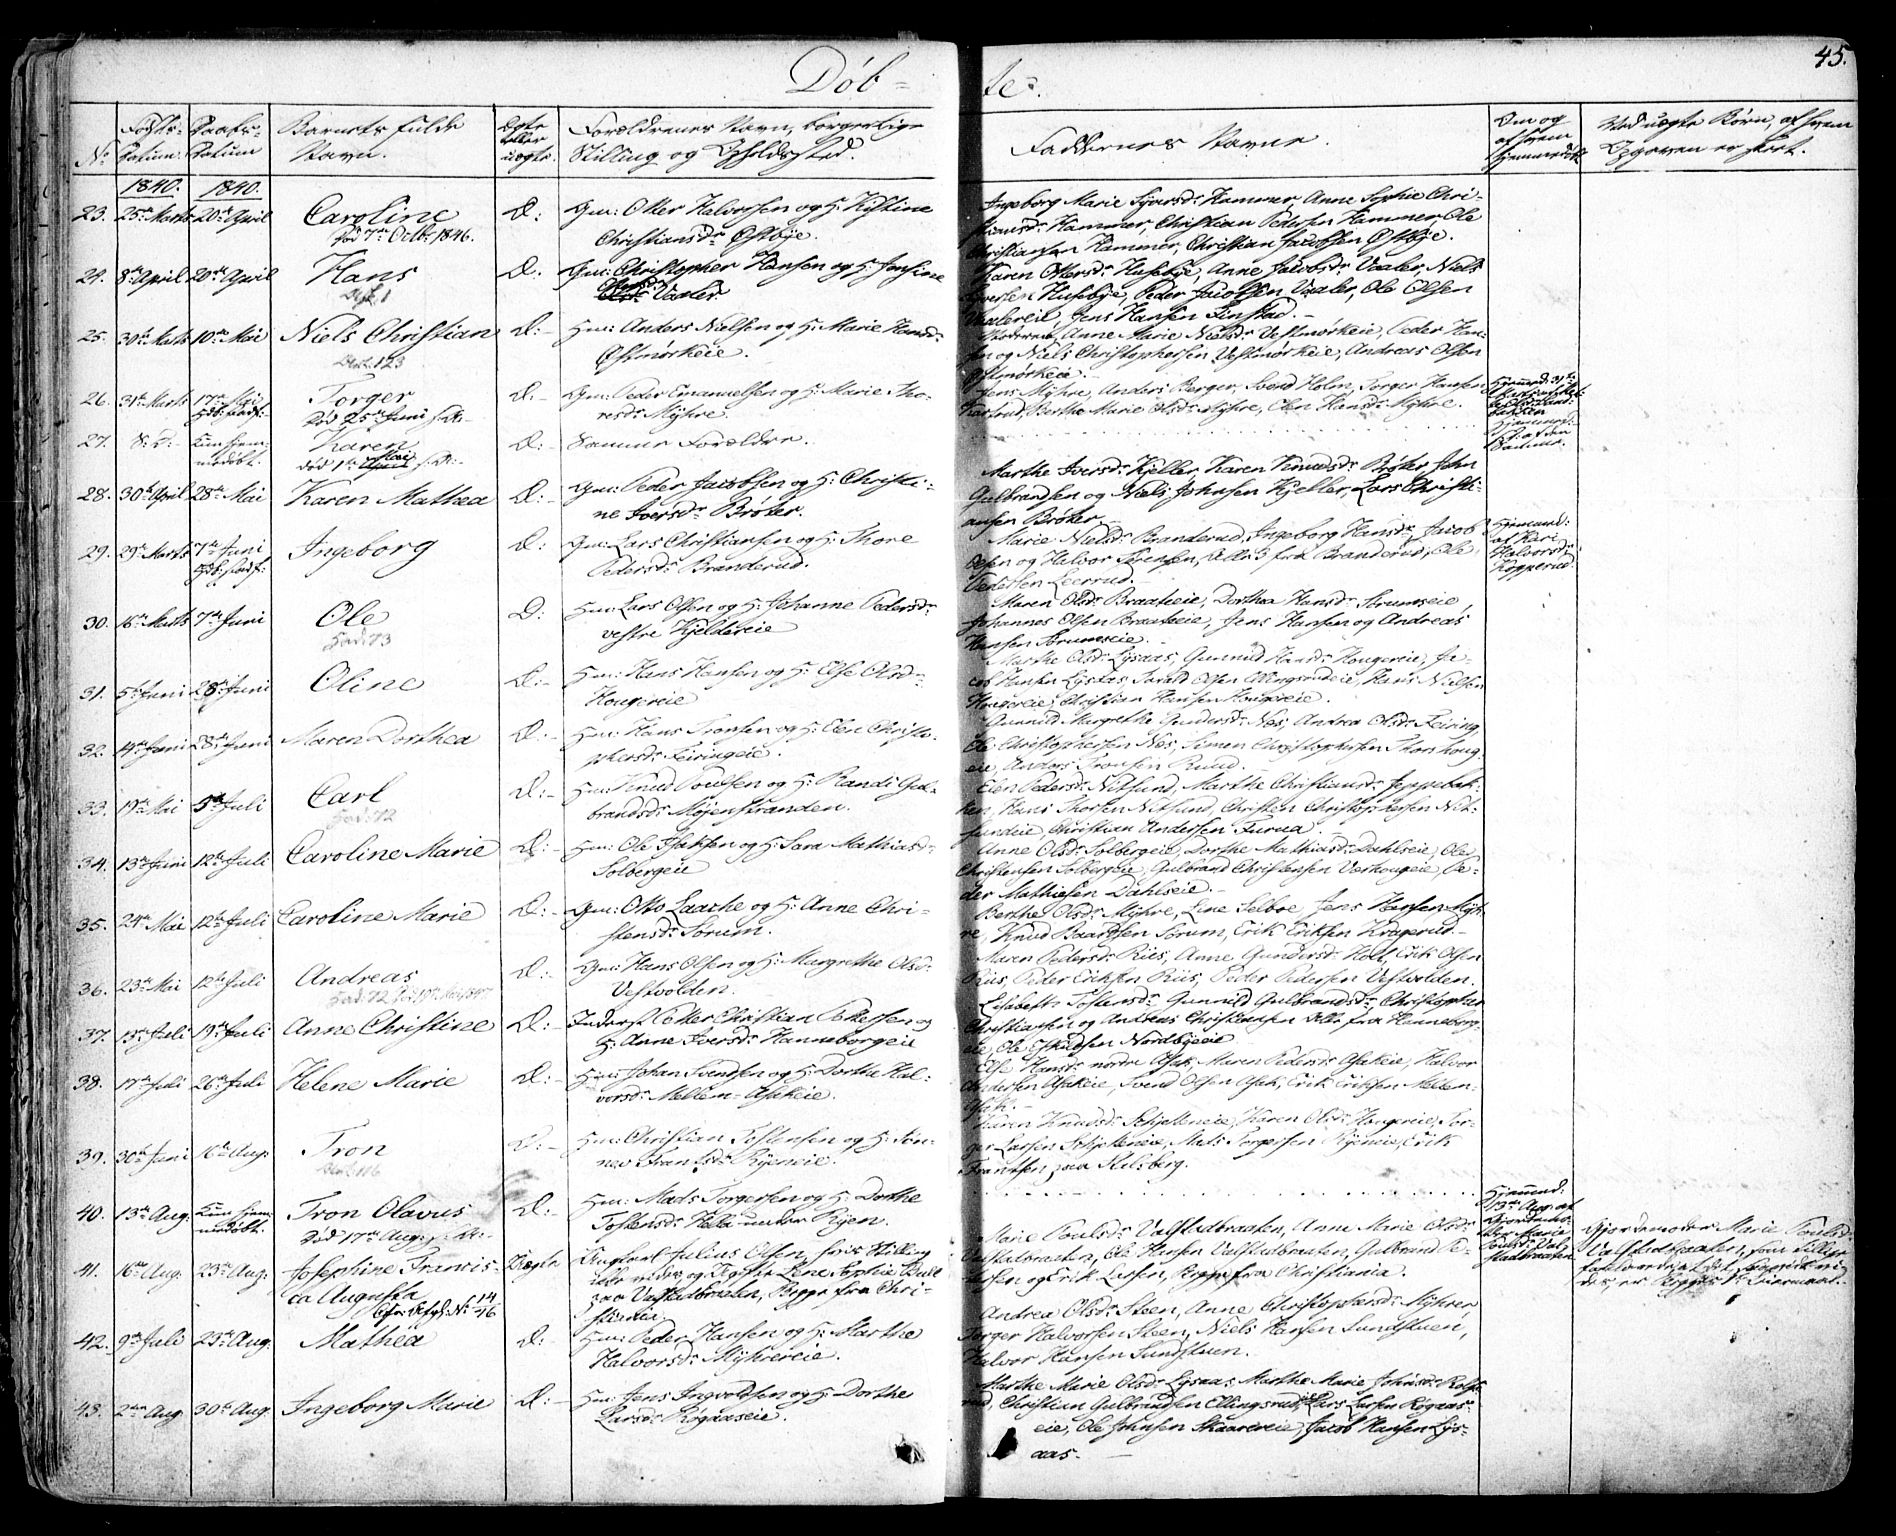 45.
Døbte.
No
Fødsels-Datum.
Daabs-Datum
Barnets fulde Navn.
Ægte eller uægte.
Forældrenes Navn, borgerlige Stilling og Opholdssted.
Faddernes Navne.
Om og af hvem hjemmedøbt
Ved uægte Børn, af hvem Opgaven er skeet.
1840. 1840.
23. 25de Marts 20de April Caroline D: Gm: Otter Halvorsen og H: Kistine
Død 7de Octbr 1846. Christiansdr Østbye.
Ingeborg Marie Syversdr Hammer, Anne Sophie Chri-
stiansdr Hammer, Christian Pedersen Hammer, Ole
Christiansen Hammer, Christian Jacobsen Østbye.
24. 8de April 20de April Hans D: Gm: Christopher Hansen og H: Jensine
Vaaler
Karen Ottersdr Husebye, Anne Jacobsdr Vaaler, Niels
Iversen Husebye, Peder Jacobsen Vaaler, Ole Olsen
Vaalereie, Jens Hansen Finstad.
25. 30te Marts 10de Mai Niels Christian D: Hm: Anders Nielsen og H: Marie Hansdr
123 Østmørkeie.
Moderen, Anne Marie Nielsdr Vestmørkeie, Peder Han-
sen og Niels Christophersen Vestmørkeie, Andreas Olsen
Østmørkeie.
26. 31te Marts 17de Mai Torger D: Gm: Peder Emanuelsen og H: Marie Tho-
Død 25de Juni resdr Myhre.
Jens Myhre, Anders Berger, Svend Holm, Torger Hansen
Berthe Marie Olsdr Myhre, Elen Hansdr Myhre.
27. Kun hjem-
medøbt. Karen D: Samme Forældre.
død 1ste Mai
28. 30te April 28de Mai Karen Mathea D: Gm: Peder Jacobsen og H: Christi-
ne Iversdr Brøter.
Marthe Iversdr Kjeller, Karen Knudsdr Brøter, John
Gulbrandsen og Niels Johnsen Kjeller, Lars Christi-
ansen Brøter.
29. 29de Marts 7de Juni Ingeborg D: Gm: Lars Christiansen og H: Thore
Pedersdr Branderud.
Marie Nielsdr Branderud, Ingeborg Hansdr, Jacob
Olsen og Halvor Sørensen, alle 3 fra Branderud, Ole
Pedersen Leerrud.
Hjemmed:
af Kari
Halvorsdr
Kopperud.
30. 16de Marts 7de Juni Ole D: Hm: Lars Olsen og H: Johanne Pedersdr
73 vestre Kjeldereie
Maren Olsdr Braateeie, Dorthea Hansdr Sørumseie,
Johannes Olsen Braateeie, Jens Hansen og Andreas
Hansen Sørumseie.
31. 5te Juni 28de Juni Oline D: Hm: Hans Hansen og H: Else Olsdr
Hougereie
Marthe Olsdr Lysaas, Gunnild Hansdr Hougereie, Ja-
cob Hansen Lysaas, Harald Olsen Hans Nielsen
Hougereie, Christian Hansen Hougereie.
32. 14de Juni 28de Juni Maren Dorthea D: Hm: Hans Tronsen og H: Elen Christo-
phersdr Feiringeie.
Gunnild Margrethe Gundersdr Nes, Andrea Olsdr Feiring,
Ole Christophersen Nes, Simen Christophersen Thorshoug-
eie, Anders Tronsen Ruud.
33. 19de Mai 5te Juli Carl D: Hm: Knud Poulsen og H: Randi Gul-
72 brandsdr Møjenstranden.
Elen Pedersdr Nitsund, Marthe Christiansdr Jeppebak-
ken, Hans Thorsen Nitsund, Christen Christophersen Nit-
sundeie, Christian Andersen Furua.
34. 13de Juni 12te Juli Caroline Marie D: Hm: Ole Isaksen og H: Sara Mathiasdr
Solbergeie
Anne Olsdr Solbergeie, Dorthe Mathiasdr Dahlseie, Ole
Christensen Solbergeie, Gulbrand Christensen Pe-
der Mathiesen Dahlseie.
35. 24de Mai 12te Juli Caroline Marie D: Gm: Otto Laache og H: Anne Chri-
stensdr Sørum.
Berthe Olsdr Myhre, Lene Selboe, Jens Hansen Myh-
re, Knud Baardsen Sørum, Erik Eriksen Krogerud.
36. 23de Mai 12te Juli Andreas D: Gm: Hans Olsen og H: Margrethe Olsdr
Vestvolden.
Maren Pedersdr Riis, Anne Gundersdr Holt, Erik Olsen
Riis, Peder Eriksen Riis, Peder Pedersen Vestvolden.
37. 13de Juli 19de Juli Anne Christine D: Inderst Petter Christian Pettersen og
H: Anne Iversdr Hanneborgeie
Lisabeth Tostensdr Gunnild Gulbrandsdr Christopher
Christiansen og Andreas Christiansen alle fra Hanneborg-
eie, Ole Eskildsen Nordbyeie
38. 17de Juli 26de Juli Helene Marie D: Hm: Johan Svendsen og H: Dorthe Hal-
vorsdr Mellem-Asakeie.
Else Hansdr nordre Asak, Maren Pedersdr Asakeie, Halvor
Andersen Asakeie, Svend Olsen Asak, Erik Eriksen Mellem-
Asak.
39. 30te Juni 16de Aug. Tron D: Hm: Christian Tostensen og H: Søn-
116 nev Fransdr Ryeneie.
Karen Knudsdr Karen Olsdr Hougereie, Tor-
ger Larsen Mads Torgersen Ryeneie, Erik
Fransen paa Skedsberg.
40. 13de Aug. Kun hjem-
medøbt. Tron Olavus D: Hm: Mads Torgersen og H: Dorthe
Død 17de Aug. Tostensdr under Ryen.
Hjemmed:
13de Aug. af
Gjordemo-
der Marie
Poulsdr Val-
stadbraaten
41. 16de Aug. 23de Aug. Josephine Francis- Uægte Ungkarl Julius Olsen, hvis Stilling
ca Augusta og Pigen Lene Sophie Bull
Cfr. No 14/46 paa Valstadbraaten, Begge fra Chri-
stiania.
Marie Poulsdr Valstadbraaten, Anne Marie Olsdr
Valstadbraaten, Ole Hansen Valstadbraaten, Gulbrand Pe-
tersen og Erik Larsen, Begge fra Christiania.
Gjordemoder Marie Poulsdr
Valstadbraaten,
42. 9de Juli 23de Aug. Mathea D: Hm: Peder Hansen og H: Marthe
Halvorsdr Myhrereie.
Andrea Olsdr Steen, Anne Christophersdr Myhrer
Torger Halvorsen Steen, Niels Hansen Sundstuen,
Halvor Hansen Sundstuen.
43. 2den Aug. 30te Aug. Ingeborg Marie D: Hm: Jens Ingvoldsen og H: Dorthe
Larsdr Rogaaseie.
Marthe Marie Olsdr Lysaas, Marthe Marie Johnsdr
Christian Gulbrandsen Ellingsrud, Lars Larsen Rogaas-
eie, Ole Johnsen Skaarereie, Jacob Hansen Lys-
aas.